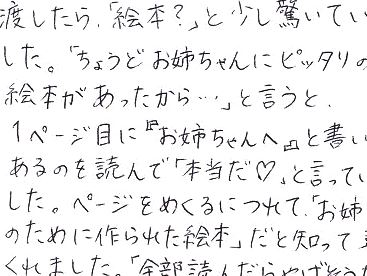 渡したら、「絵本？」と少し驚いてい
した。「ちょうどお姉ちゃんにピッタリの
絵本があったから…」と言うと、
1ページ目に『お姉ちゃんへ』と書い
あるのを読んで「本当だ♡」と言ってい
した。ページをめくるにつれて、「お姉
のために作られた絵本」だと知って
くれました。「全部読んだら